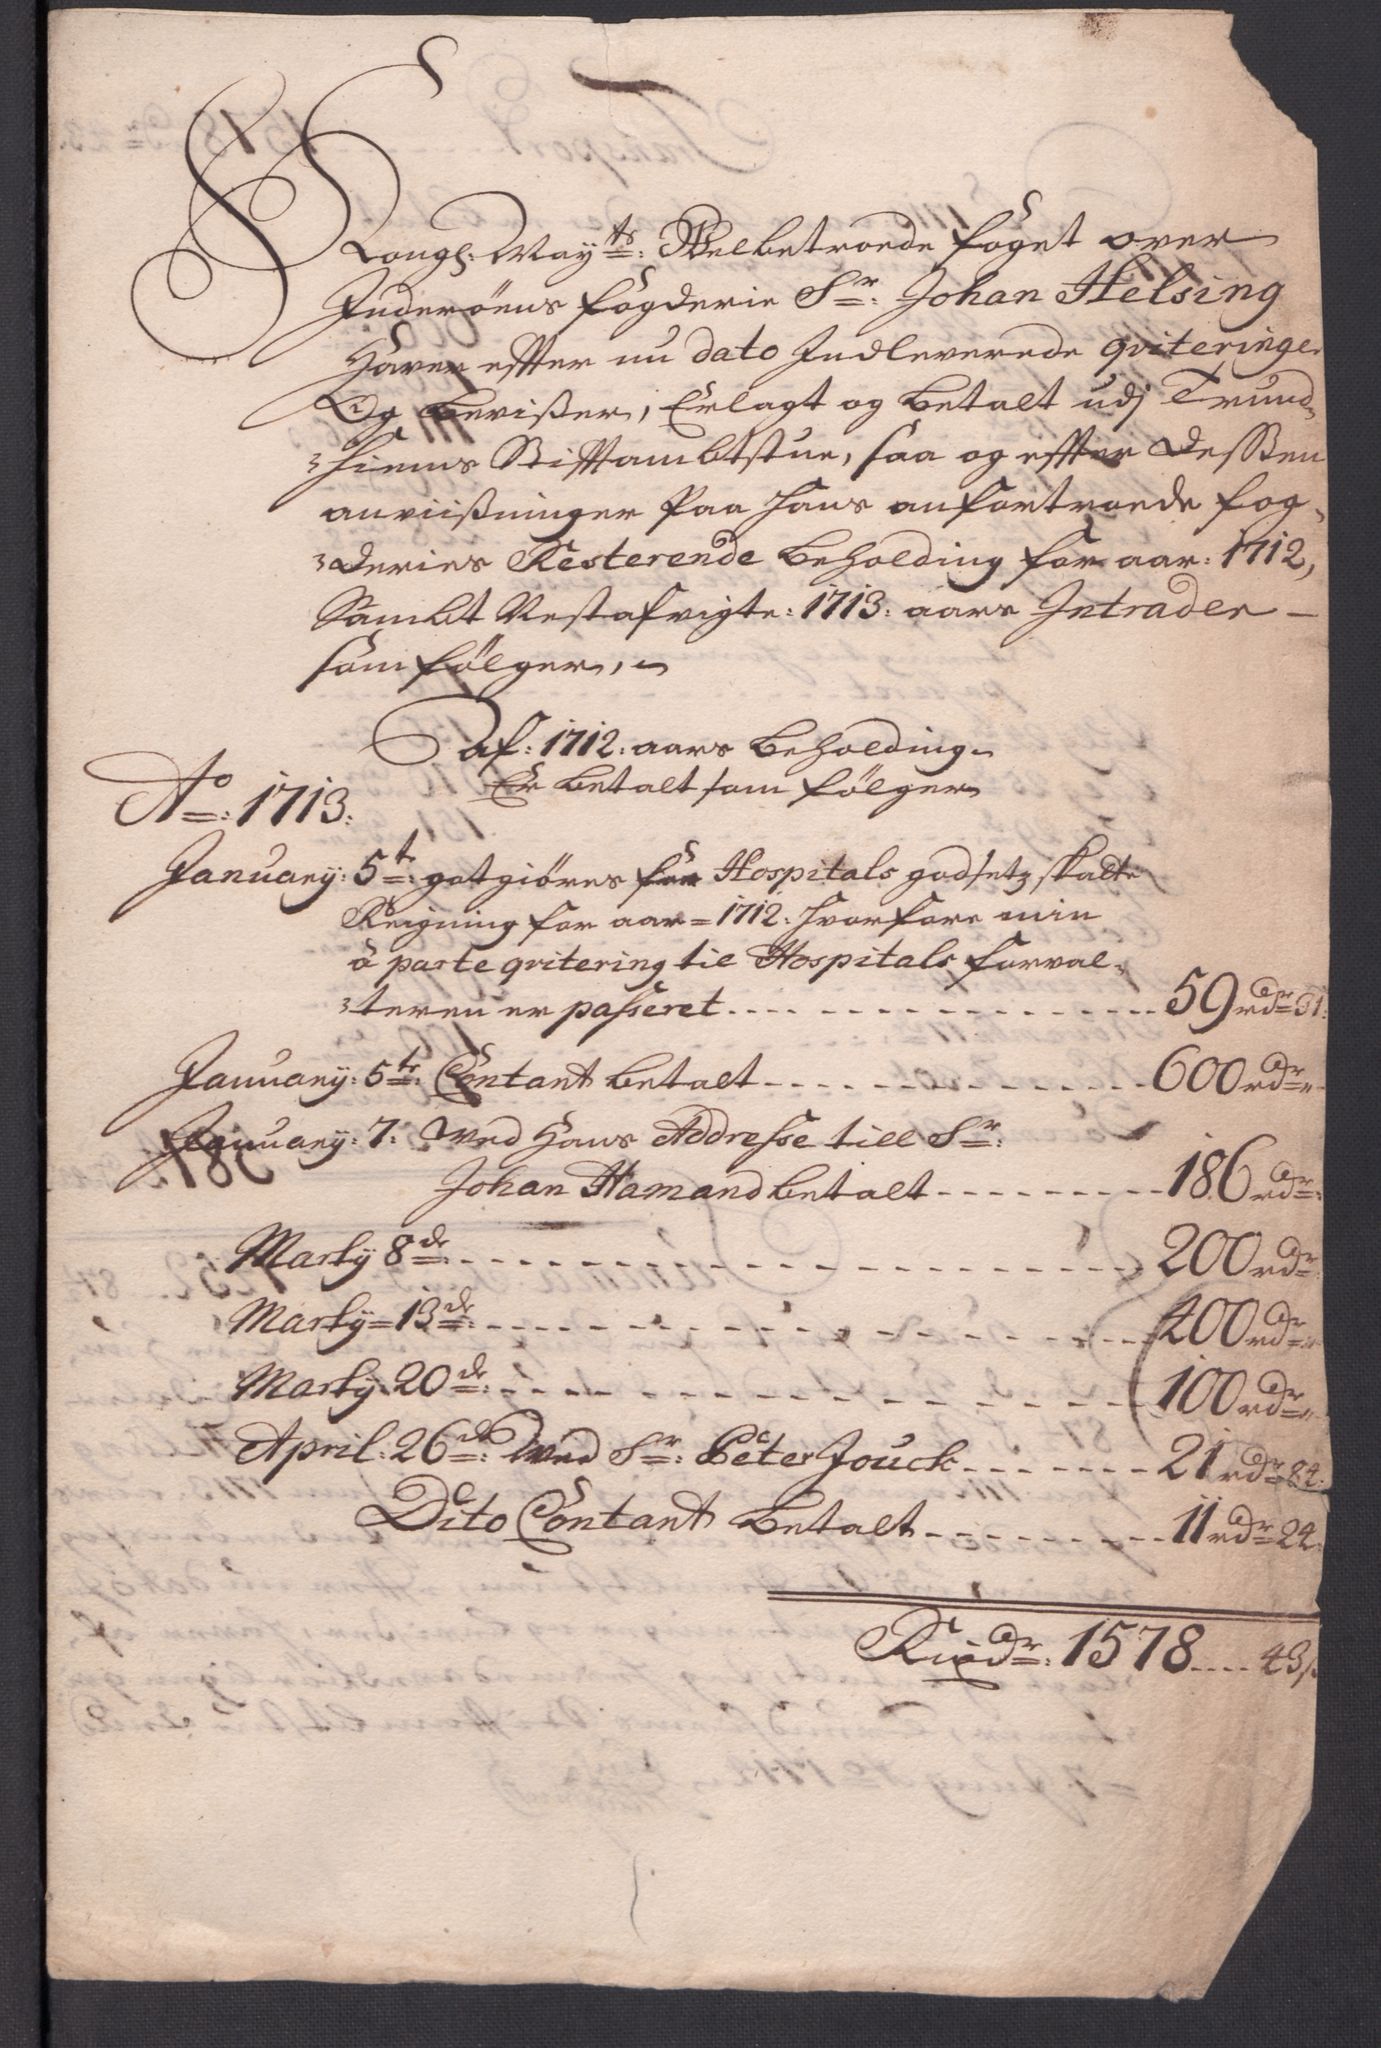 Kongl: May^ts: Welbetroede foget over
Inderöens fogderie S^r: Johan Helsing
Haver effter nu dato Indleverede qviteringer
Og beviißer, Erlagt og betalt udj Trund-
hiems Stifftambtstue, saa og effter dessen
anviißninger paa hans anfortroede fog-
deries Resterende beholding for aar: 1712,
Sambt Restafvigte: 1713: aars Intrader
som fölger,
af: 1712: aars beholding
Er betalt som fölger
A^o: 1713:
January: 5^te: gotgiöres for Hospitals godsetz skatte
Reigning for aar = 1712: hvorfore min
á parte qvitering til Hospitals forval-
teren er passeret .... 59 rdr 31:
January: 5^te: Contant betalt .... 600 rdr "
January: 7: ved Hans Addresse till S^r:
Johan Hamand betalt .... 186 rdr:
Marty 8^de: .... 200 rdr:
Marty = 13^de: .... 400 rdr "
Marty: 20^de: .... 100 rdr "
April: 26^de: ved S^r: Peter Jouck .... 21 rdr 84:
Dito Contant betalt .... 11 rdr 24:
Rixdr: 1578 .... 43 s